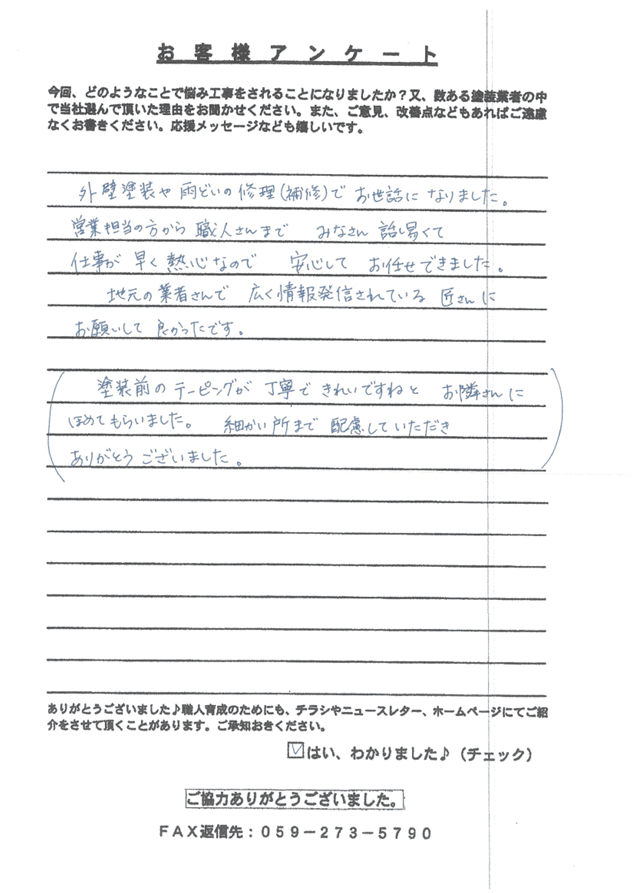 お客様アンケート
今回、どのようなことで悩み工事をされることになりましたか?又、数ある塗装業者の中
で当社選んで頂いた理由をお聞かせください。また、ご意見、改善点などもあればご遠慮
なくお書きください。応援メッセージなども嬉しいです。
外壁塗装や雨どいの修理(補修)でお世話になりました。
営業担当の方から職人さんまで みなさん話し易くて
仕事が早く熱心なので 安心して お任せできました。
地元の業者さんで 広く情報発信されている 匠さんに
お願いして良かったです。
(塗装前のテーピングが丁寧できれいですねと お隣さんに
ほめてもらいました。 細かい所まで配慮していただき
ありがとうございました。)
ありがとうございました♪職人育成のためにも、チラシやニュースレター、ホームページにてご紹
介をさせて頂くことがあります。ご承知おきください。
☑はい、わかりました♪(チェック)
ご協力ありがとうございました。
FAX返信先:059-273-5790